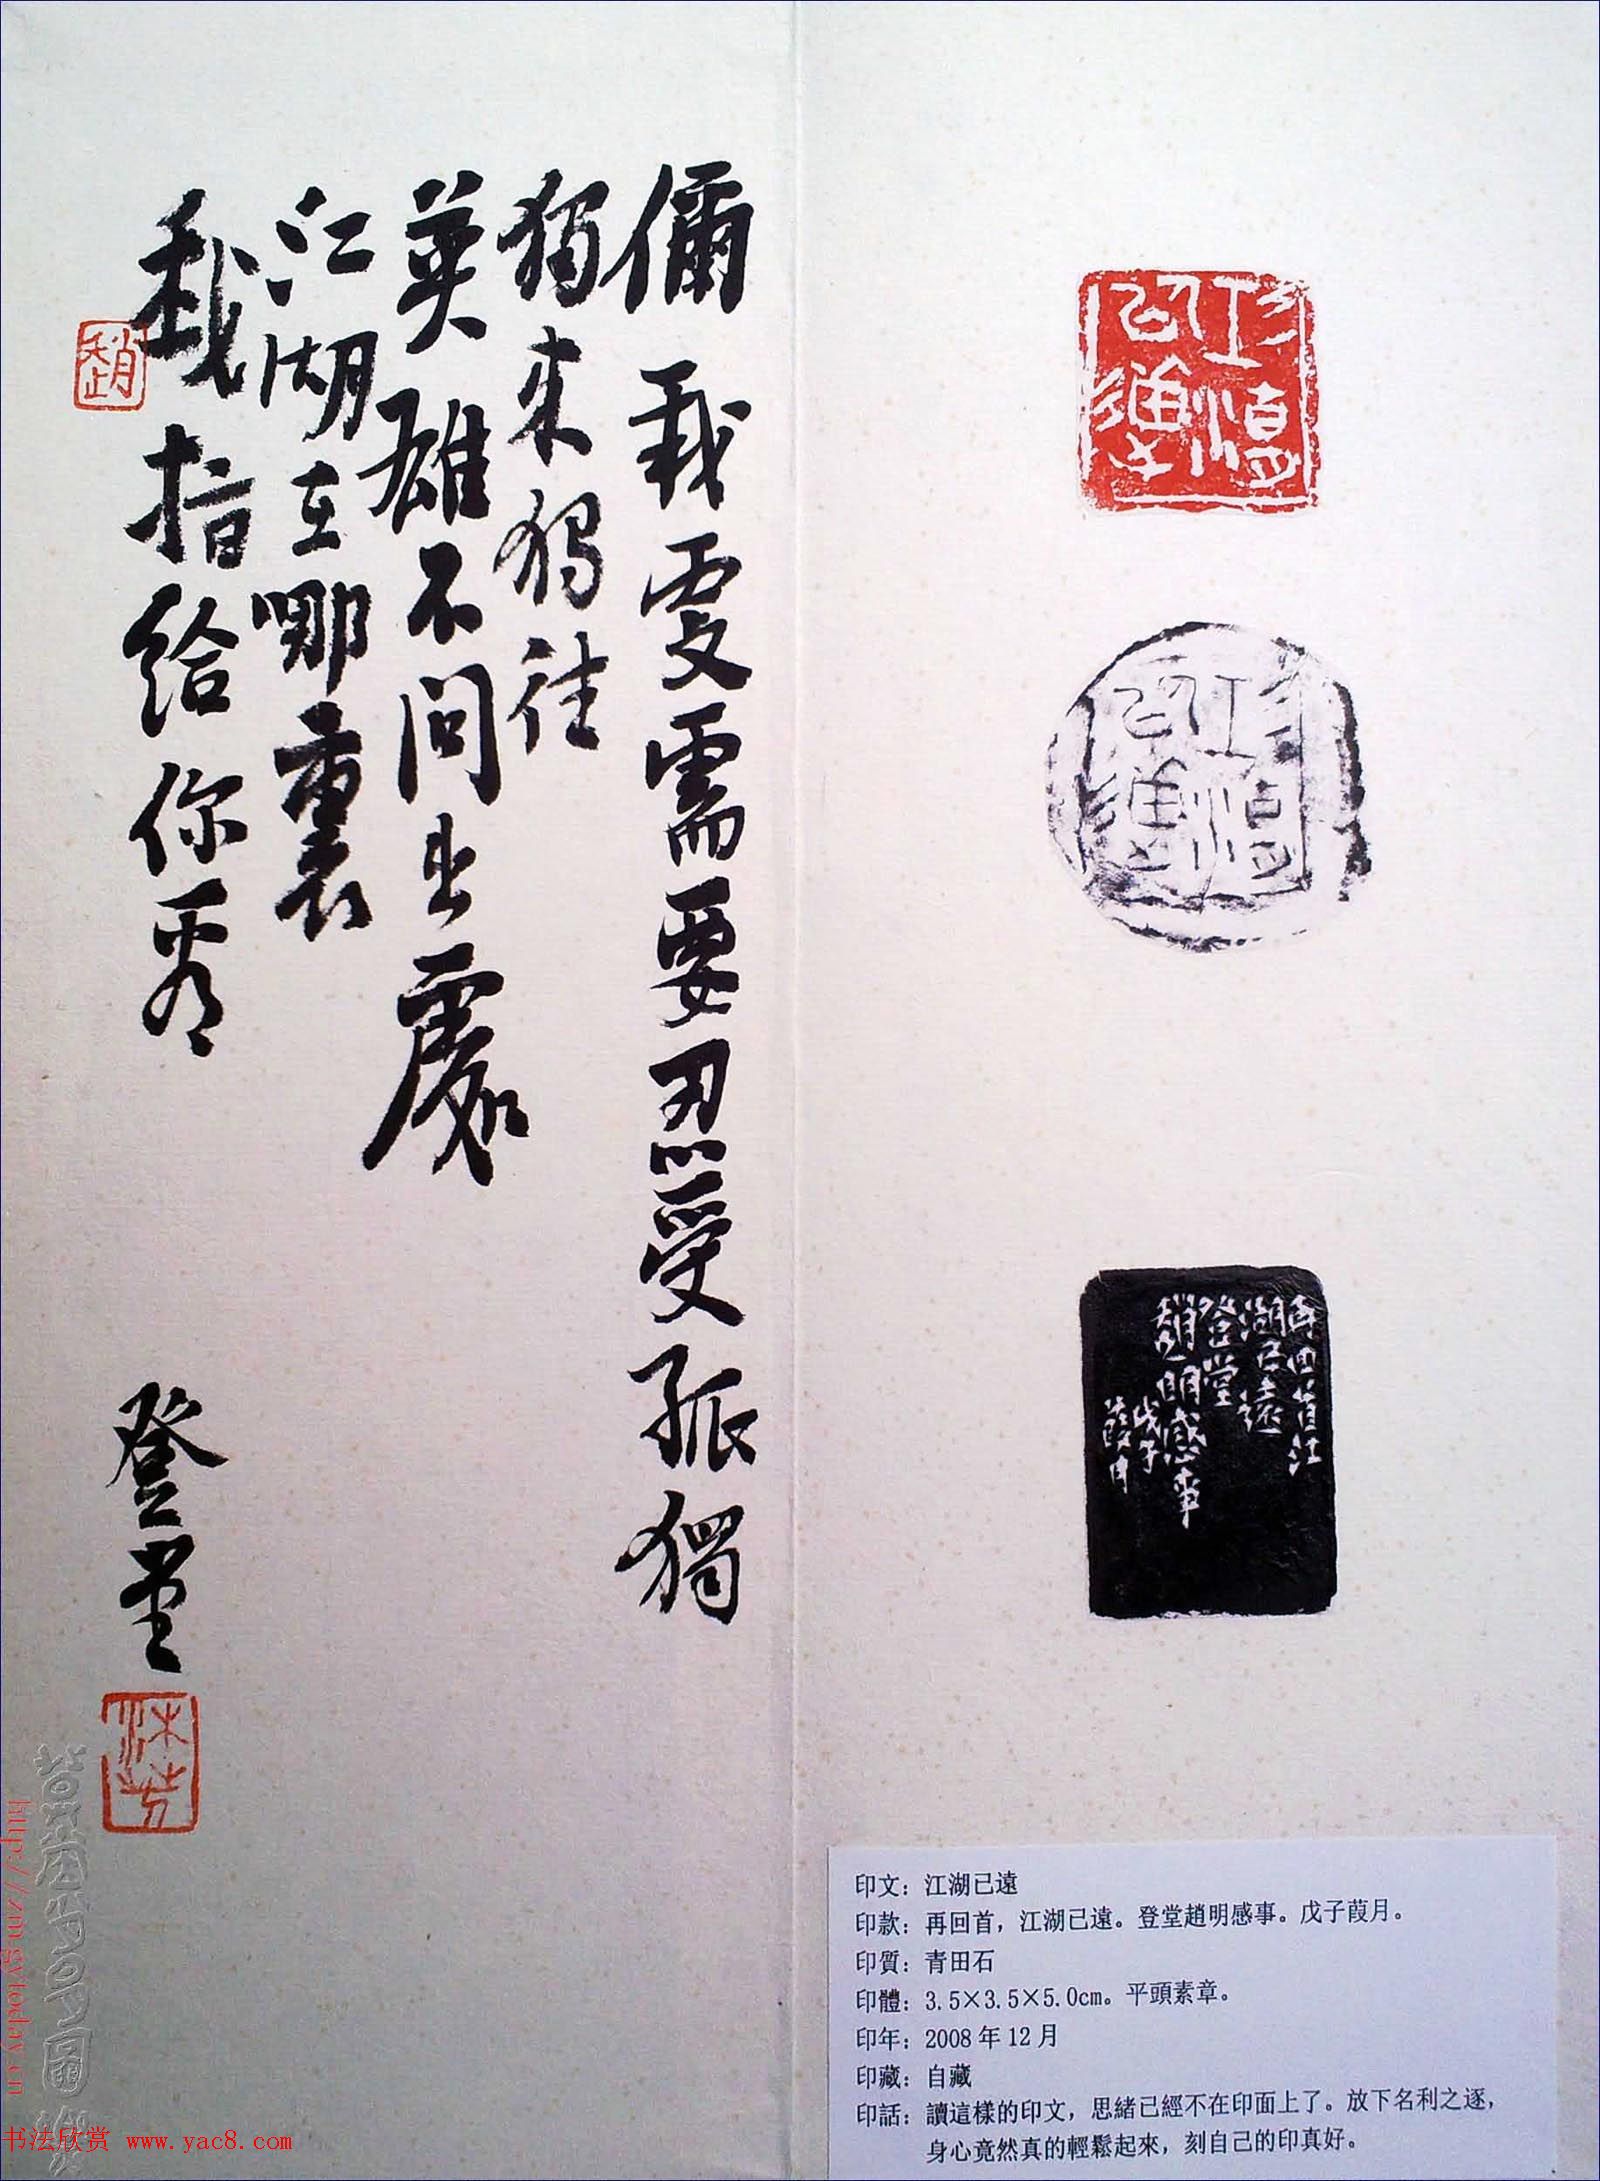 儞我更需要忍受孤獨
獨來獨往
英雄不問出處
江湖在哪裏
我指給你看
登堂
趙
江湖已遠
江湖已遠
再回首江
湖已遠
登堂
趙明感事
戊子
葭月
印文：江湖已遠
印款：再回首，江湖已遠。登堂趙明感事。戊子葭月。
印質：青田石
印體：3.5×3.5×5.0cm。平頭素章。
印年：2008年12月
印藏：自藏
印話：讀這樣的印文，思緒已經不在印面上了。放下名利之逐，
身心竟然真的輕鬆起來，刻自己的印真好。
http://zm.gytoday.cn
书法欣赏 www.yac8.com